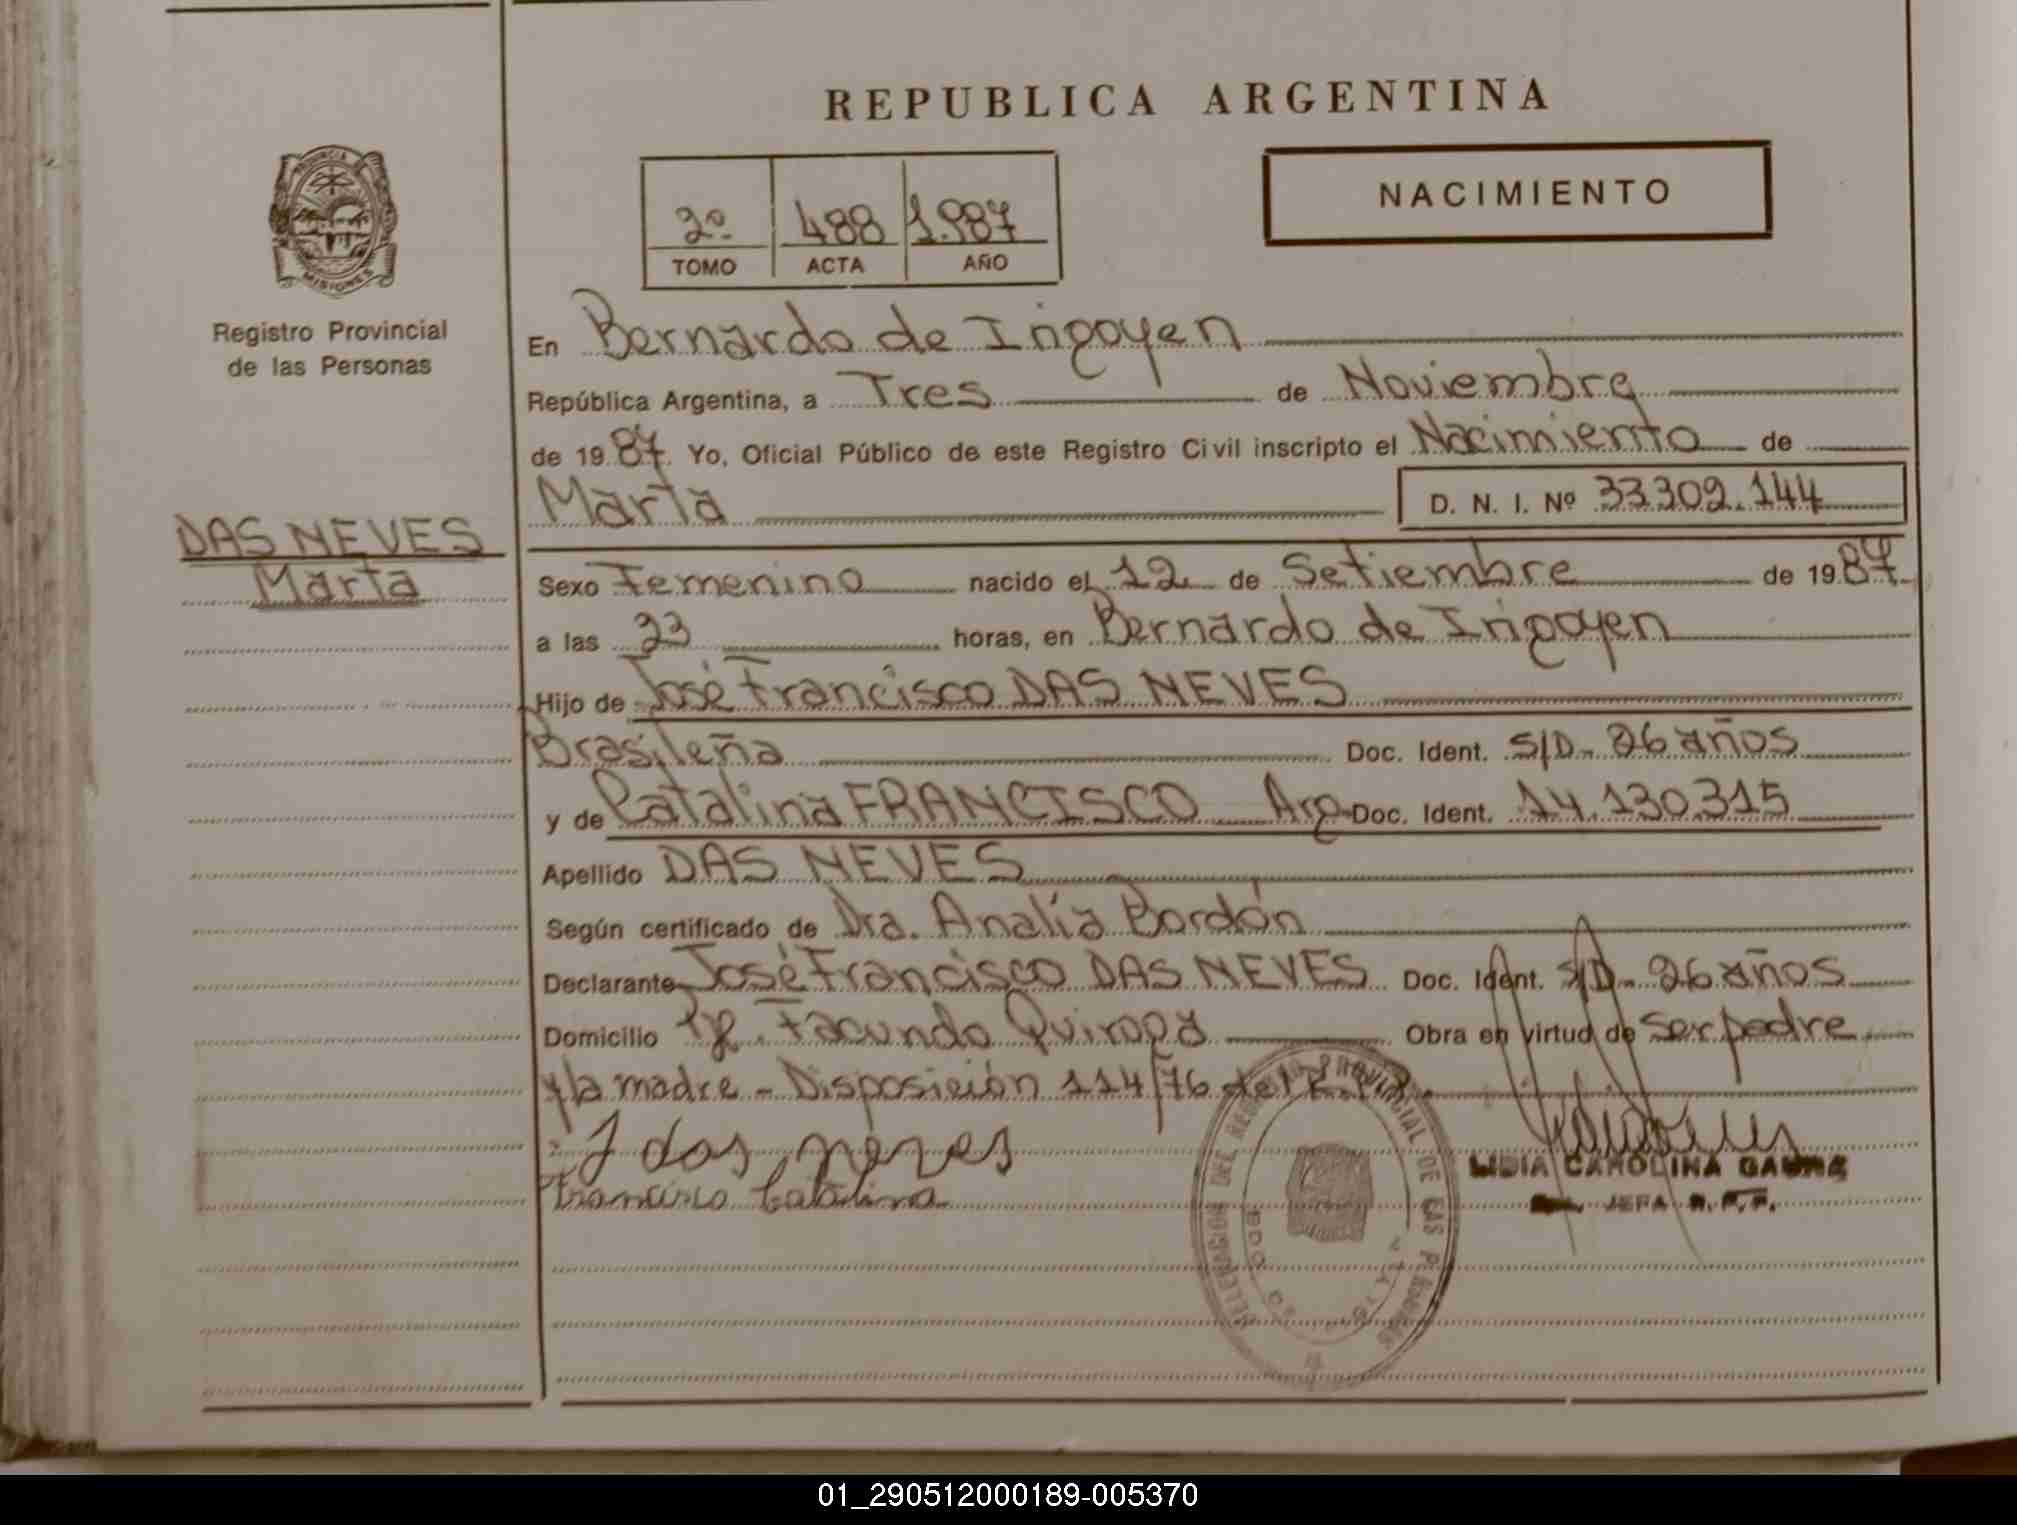 REPUBLICA ARGENTINA
PROVINCIA
MISIONES
Registro Provincial
de las Personas
2º 488 1.987
TOMO ACTA AÑO
NACIMIENTO
En Bernardo de Irigoyen
República Argentina, a Tres de Noviembre
de 1987. Yo, Oficial Público de este Registro Civil inscripto el Nacimiento de
Marta D. N. I. Nº 33.309.144
DAS NEVES
Marta
Sexo Femenino nacido el 12 de Setiembre de 1987
a las 23 horas, en Bernardo de Irigoyen
Hijo de José Francisco DAS NEVES
Brasileña Doc. Ident. S/D- 26 años
y de Catalina FRANCISCO Arg Doc. Ident. 14.130.315
Apellido DAS NEVES
Según certificado de Dra. Analía Bordón
Declarante José Francisco DAS NEVES Doc. Ident. S/D- 26 años
Domicilio Pje. Facundo Quiroga Obra en virtud de ser padre
y la madre - Disposición 114/76 del R.P.P.
J das neves
Francisco Catalina
DELEGACION DEL REGISTRO PROVINCIAL DE LAS PERSONAS
LIDIA CAROLINA
JEFA R. P. P.
01_290512000189-005370